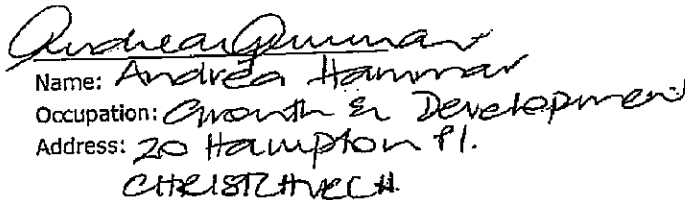 Name: Andrea Hammar
Occupation: Growth & Development
Address: 20 Hampton Pl.
CHRISTCHURCH.